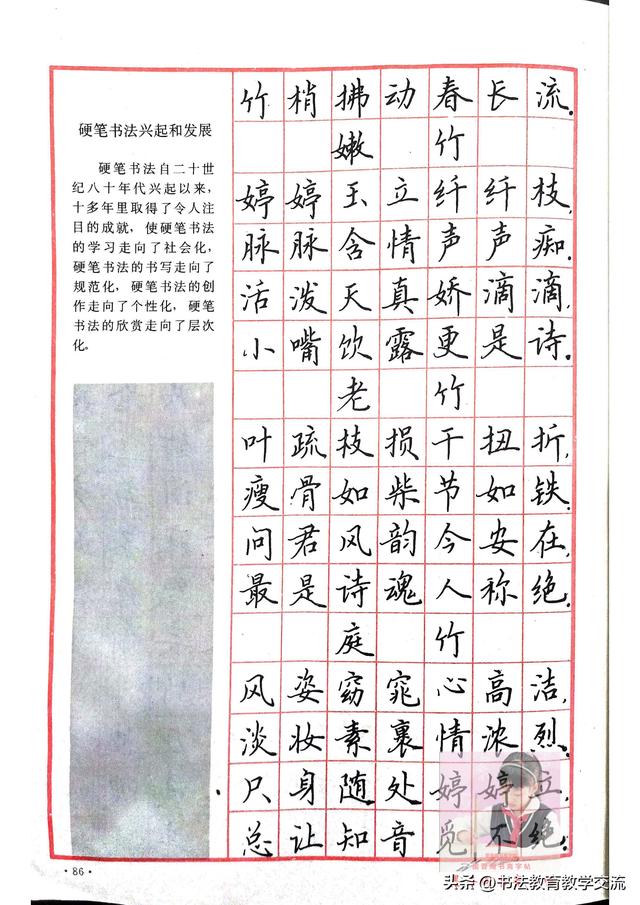 硬笔书法兴起和发展
硬笔书法自二十世
纪八十年代兴起以来，
十多年里取得了令人注
目的成就，使硬笔书法
的学习走向了社会化，
硬笔书法的书写走向了
规范化，硬笔书法的创
作走向了个性化，硬笔
书法的欣赏走向了层次
化。
竹梢拂动春长流。
嫩竹
婷婷玉立纤纤枝，
脉脉含情声声痴。
活泼天真娇滴滴，
小嘴饮露更是诗。
老竹
叶疏枝损干扭折，
瘦骨如柴节如铁。
问君风韵今安在，
最是诗魂人称绝。
庭竹
风姿窈窕心高洁，
淡妆素裹情浓烈。
只身随处婷婷立，
总让知音觅不绝。
·86·
头条 @书法教育教学交流